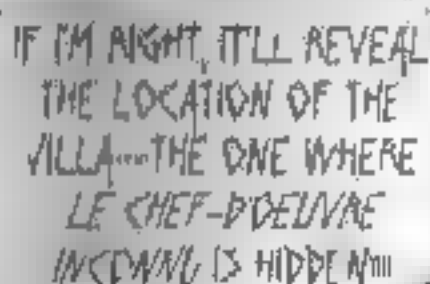 IF I'M RIGHT, IT'LL REVEAL
THE LOCATION OF THE
VILLA....THE ONE WHERE
LE CHEF-D'OEUVRE
INCONNU IS HIDDEN!!!!